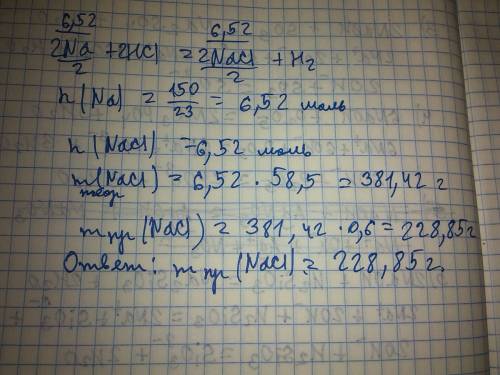 6,52 6,52
2Na/2 + 2HCl = 2NaCl/2 + H₂
n(Na) = 150/23 = 6,52 моль
n(NaCl) = 6,52 моль
m теор (NaCl) = 6,52 · 58,5 = 381,42 г
m пр (NaCl) = 381,42 · 0,6 = 228,85 г
Ответ: m пр (NaCl) = 228,85 г.